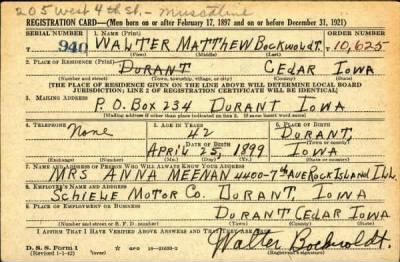 205 West 4th St. - Muscatine
REGISTRATION CARD—(Men born on or after February 17, 1897 and on or before December 31, 1921)
SERIAL NUMBER 1. NAME (Print) ORDER NUMBER
940 WALTER MATTHEW Bockwoldt. T 10,625
(First) (Middle) (Last)
2. PLACE OF RESIDENCE (Print)
DURANT CEDAR IOWA
(Number and street) (Town, township, village, or city) (County) (State)
[THE PLACE OF RESIDENCE GIVEN ON THE LINE ABOVE WILL DETERMINE LOCAL BOARD
JURISDICTION; LINE 2 OF REGISTRATION CERTIFICATE WILL BE IDENTICAL]
3. MAILING ADDRESS
P.O. BOX 234 DURANT IOWA
(Mailing address if other than place indicated on line 2. If same insert word same)
4. TELEPHONE 5. AGE IN YEARS 6. PLACE OF BIRTH
None 42 DURANT,
DATE OF BIRTH (Town or county)
APRIL 25, 1899 IOWA
(Exchange) (Number) (Mo.) (Day) (Yr.) (State or country)
7. NAME AND ADDRESS OF PERSON WHO WILL ALWAYS KNOW YOUR ADDRESS
MRS ANNA MEENAN 4400-7th AVE ROCK ISLAND ILL.
8. EMPLOYER'S NAME AND ADDRESS
SCHIELE MOTOR CO. DURANT, IOWA
9. PLACE OF EMPLOYMENT OR BUSINESS
DURANT CEDAR IOWA
(Number and street or R. F. D. number) (Town) (County) (State)
I AFFIRM THAT I HAVE VERIFIED ABOVE ANSWERS AND THAT THEY ARE TRUE.
D. S. S. Form 1
(Revised 1-1-42) (over) Walter Bockwoldt.